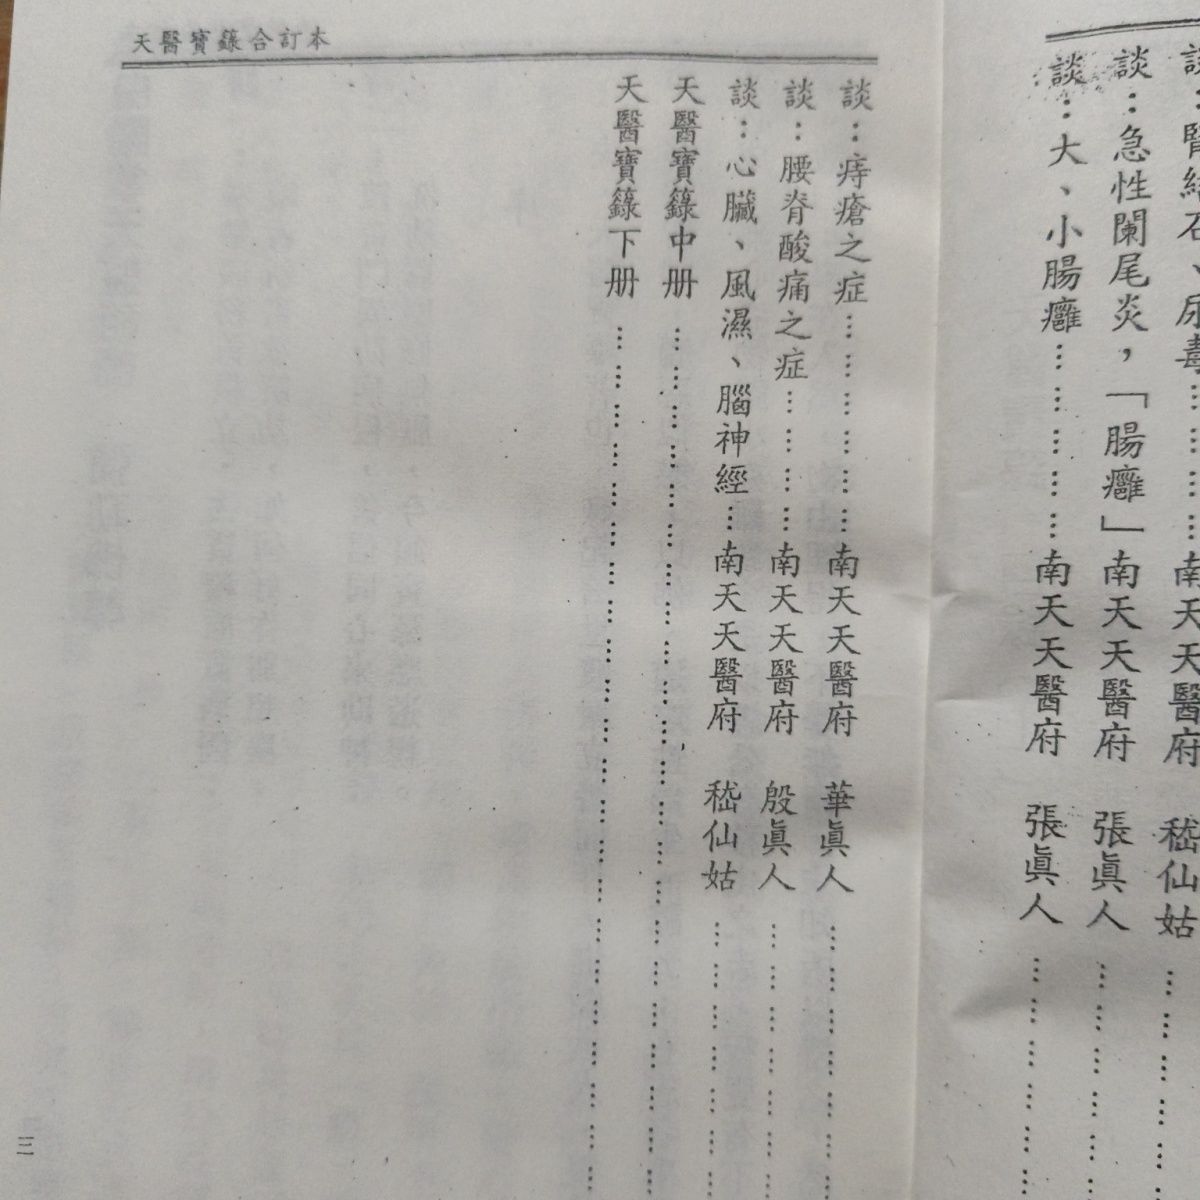 談：腎結石、尿毒………………南天天醫府　嵇仙姑………………
談：急性闌尾炎，「腸癰」南天天醫府　張眞人………………
談：大、小腸癰………………南天天醫府　張眞人………………
天醫寶籙合訂本
談：痔瘡之症………………南天天醫府　華眞人………………
談：腰脊酸痛之症…………南天天醫府　殷眞人………………
談：心臟、風濕、腦神經…南天天醫府　嵇仙姑………………
天醫寶籙中册………………………………………………
天醫寶籙下册………………………………………………
三